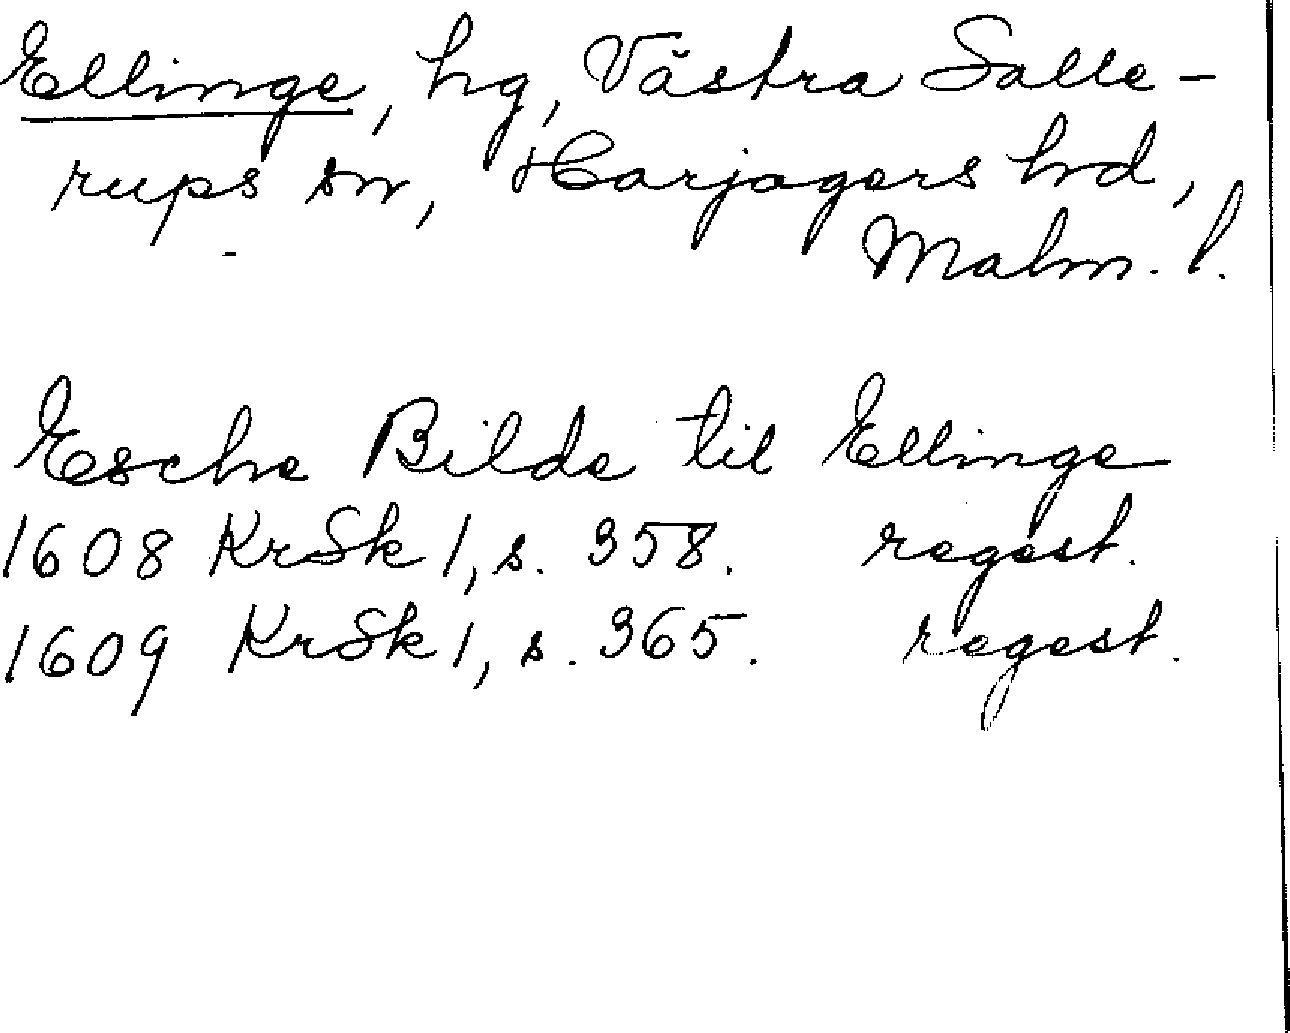 Ellinge, hg, Västra Salle-
rups sn, Harjagers hrd,
Malm. l.
Esche Bilde til Ellinge
1608 KrSk 1, s. 358. regest.
1609 KrSk 1, s. 365. regest.